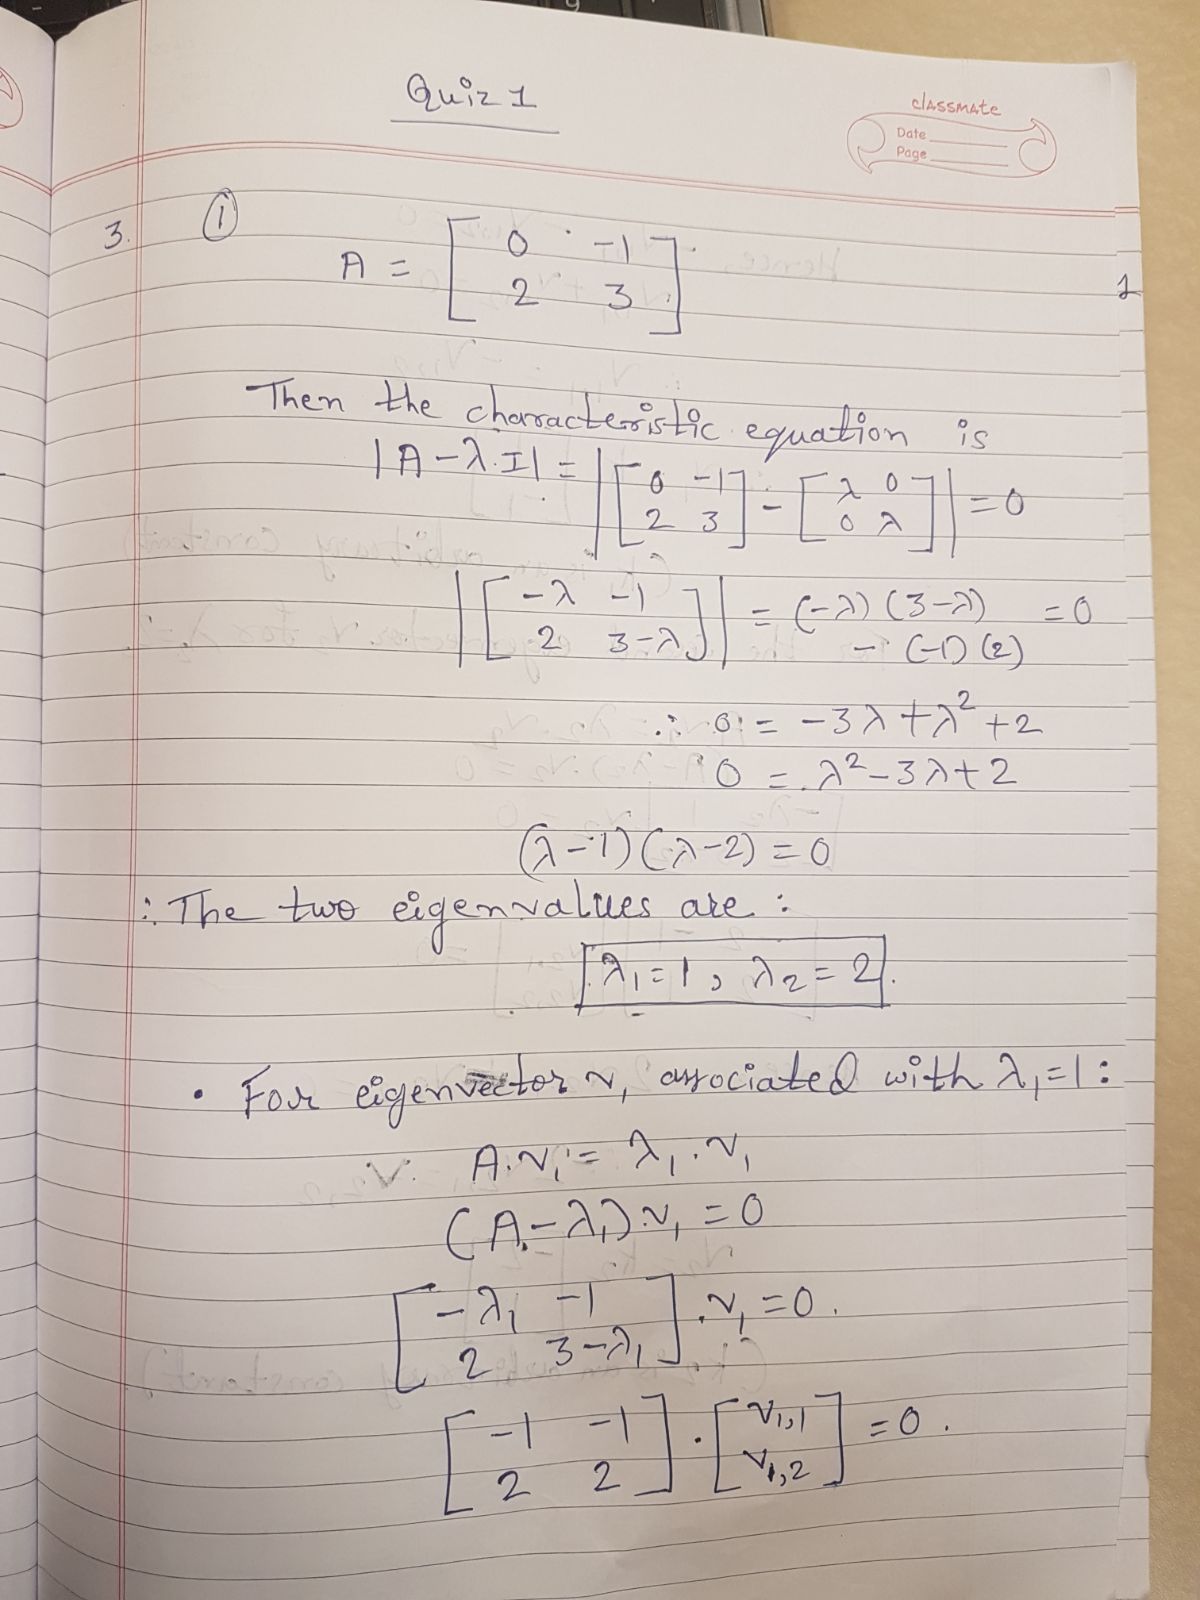 Quiz 1
classmate
Date
Page
3. ①
A = [ 0 -1
2 3 ]
1
Then the characteristic equation is
|A - λ.I| = | [ 0 -1
2 3 ] - [ λ 0
0 λ ] | = 0
| [ -λ -1
2 3-λ ] | = (-λ) (3-λ) - (-1) (2) = 0
∴ 0 = -3λ + λ² + 2
0 = λ² - 3λ + 2
(λ-1) (λ-2) = 0
∴ The two eigenvalues are :
λ₁ = 1 , λ₂ = 2 .
• For eigenvector v₁ associated with λ₁ = 1 :
∵ A.v₁ = λ₁ . v₁
(A - λ₁) . v₁ = 0
[ -λ₁ -1
2 3-λ₁ ] . v₁ = 0 .
[ -1 -1
2 2 ] . [ v₁,₁
v₁,₂ ] = 0 .